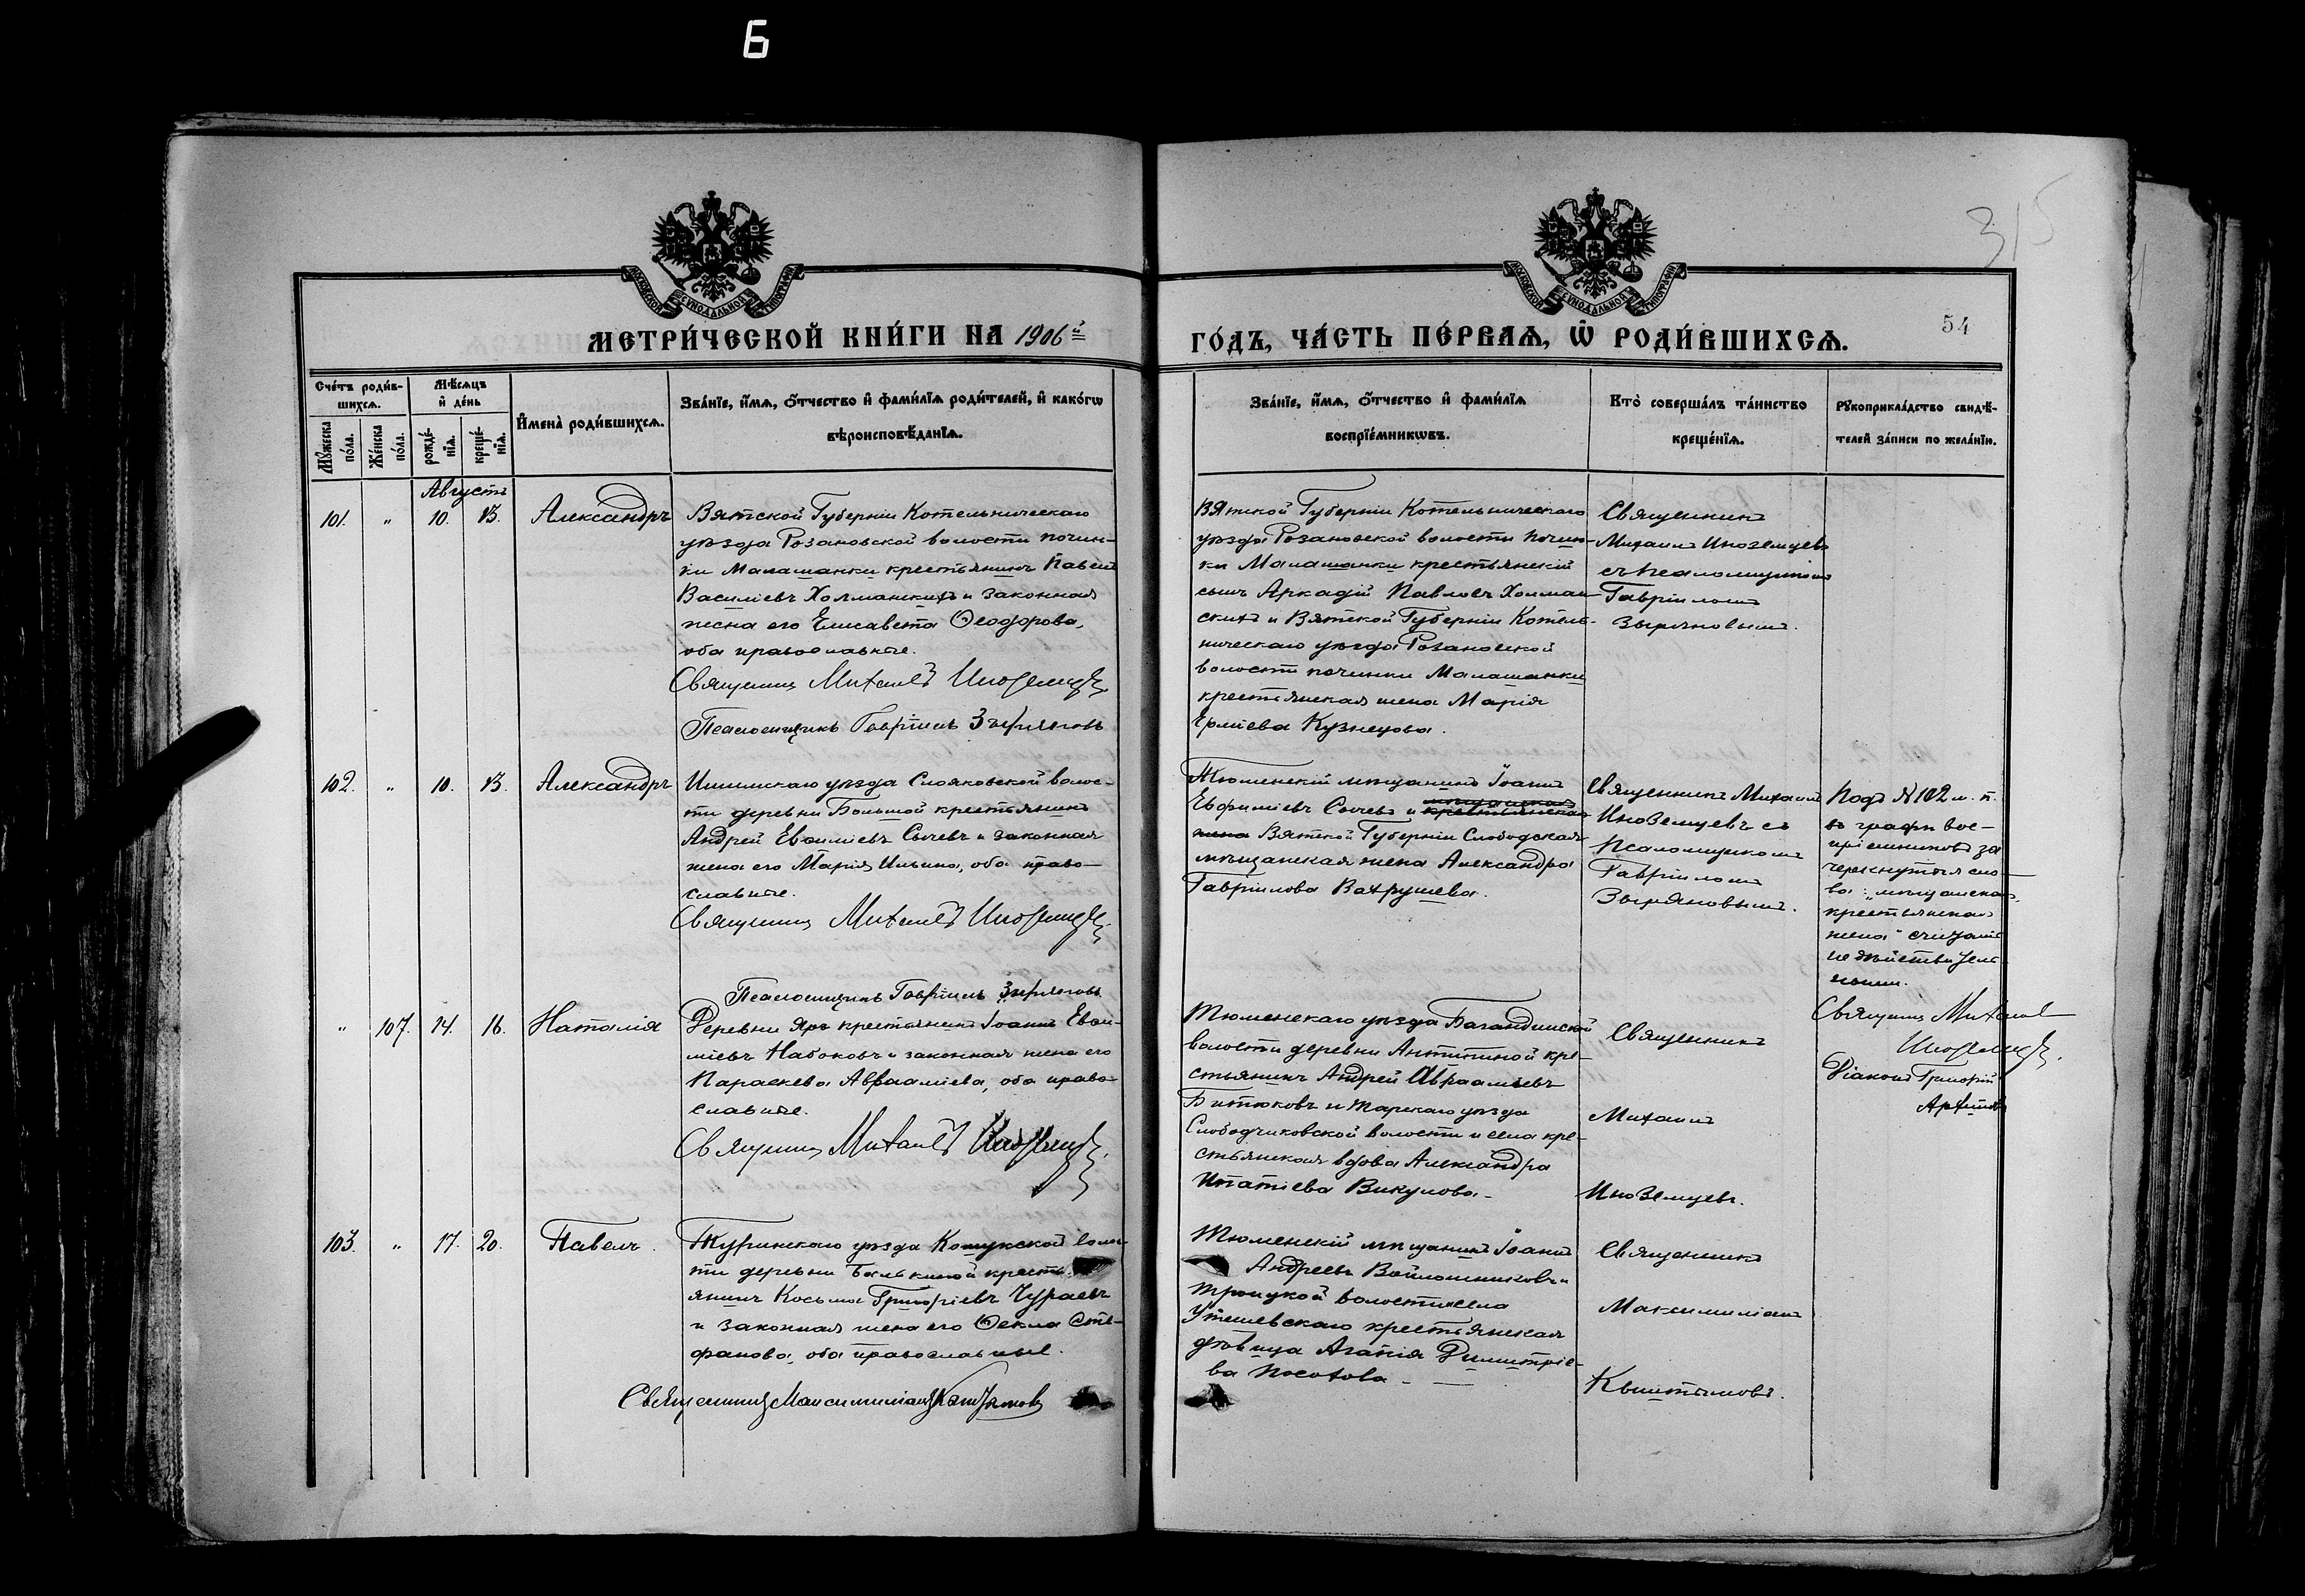 Б
315
54
МОСКОВСКОЙ СУНОДАЛЬНОЙ ТИПОГРАФІИ
МОСКОВСКОЙ СУНОДАЛЬНОЙ ТИПОГРАФІИ
МЕТРИ́ЧЕСКОЙ КНИ́ГИ НА 1906й
ГО́ДЪ, ЧА́СТЬ ПЕ́РВАѦ, Ѿ РОДИ́ВШИХСѦ.
Сче́тъ роди́в-
шихсѧ.
Мꙋ́жеска по́ла.
Же́нска по́ла.
Мѣ́сѧцъ
и҆ де́нь
рожде́-
нїѧ.
креще́-
нїѧ.
И҆мена̀ роди́вшихсѧ.
Зва́нїе, и҆́мѧ, ѻ҆́тчество и҆ фами́лїѧ роди́телей, и҆ како́гѡ
вѣроисповѣ́данїѧ.
Зва́нїе, и҆́мѧ, ѻ҆́тчество и҆ фами́лїѧ
воспрїе́мникѡвъ.
Кто̀ соверша́лъ та́инство
креще́нїѧ.
Рꙋкоприкла́дство свидѣ́-
телей за́писи по жела́нїю.
Августъ
101. " 10. 13. Александръ
Вятской Губерніи Котельническаго
уѣзда Розановской волости почин-
ки Малашанки крестьянинъ Павелъ
Василіевъ Холманскихъ и законная
жена его Елисавета Ѳеодорова,
оба православные.
Священникъ Михаилъ Иноземцевъ
Псаломщикъ Гавріилъ Зыряновъ
Вятской Губерніи Котельническаго
уѣзда Розановской волости почин-
ки Малашанки крестьянскій
сынъ Аркадій Павловъ Холман-
скихъ и Вятской Губерніи Котель-
ническаго уѣзда Розановской
волости починки Малашанки
крестьянская жена Марія
Ермиева Кузнецова.
Священникъ
Михаилъ Иноземцевъ
съ псаломщикомъ
Гавріиломъ
Зыряновымъ.
102. " 10. 13. Александръ
Ишимскаго уѣзда волос-
ти деревни Большой крестьянинъ
Андрей Евѳиміевъ Сычевъ и законная
жена его Марія Ильина, оба право-
славные.
Священникъ Михаилъ Иноземцевъ
Псаломщикъ Гавріилъ Зыряновъ
Тюменскій мѣщанинъ Іоаннъ
Евфиміевъ Сычевъ и мѣщанская крестьянская
жена Вятской Губерніи Слободская
мѣщанская жена Александра
Гавріилова Вахрушева.
Священникъ Михаилъ
Иноземцевъ съ
Псаломщикомъ
Гавріиломъ
Зыряновымъ.
Подъ № 102 м. п.
въ графѣ вос-
пріемниковъ за
черкнутыя сло-
ва: "мѣщанская,
крестьянская
жена" считать
недѣйствитель-
ными.
Священникъ Михаилъ
Иноземцевъ.
Діаконъ Григорій
" 107. 14. 16. Наталія
Деревни Яръ крестьянинъ Іоаннъ Евѳи-
міевъ Набоковъ и законная жена его
Параскева Авраамiева, оба право-
славные.
Священникъ Михаилъ Иноземцевъ
Тюменскаго уѣзда Богандинской
волости деревни Антипиной кре-
стьянинъ Андрей Авраамiевъ
Битюковъ и Тарскаго уѣзда
Слободчиковской волости и села кре-
стьянская вдова Александра
Игнатіева Викулова.
Священникъ
Михаилъ
Иноземцевъ.
103. " 17. 20. Павелъ.
Туринскаго уѣзда Кошукской волос-
ти деревни крестьянинъ
Косьма Григоріевъ Чураевъ
и законная жена его Ѳекла Сте-
фанова, оба православные.
Священникъ Максимиліанъ Кыштымовъ
Тюменскій мѣщанинъ Іоаннъ
Андреевъ Войлошниковъ и
Троицкой волости села
Утешевскаго крестьянская
дѣвица Агапія Димитріе-
ва Носова
Священникъ
Максимиліанъ
Кыштымовъ.